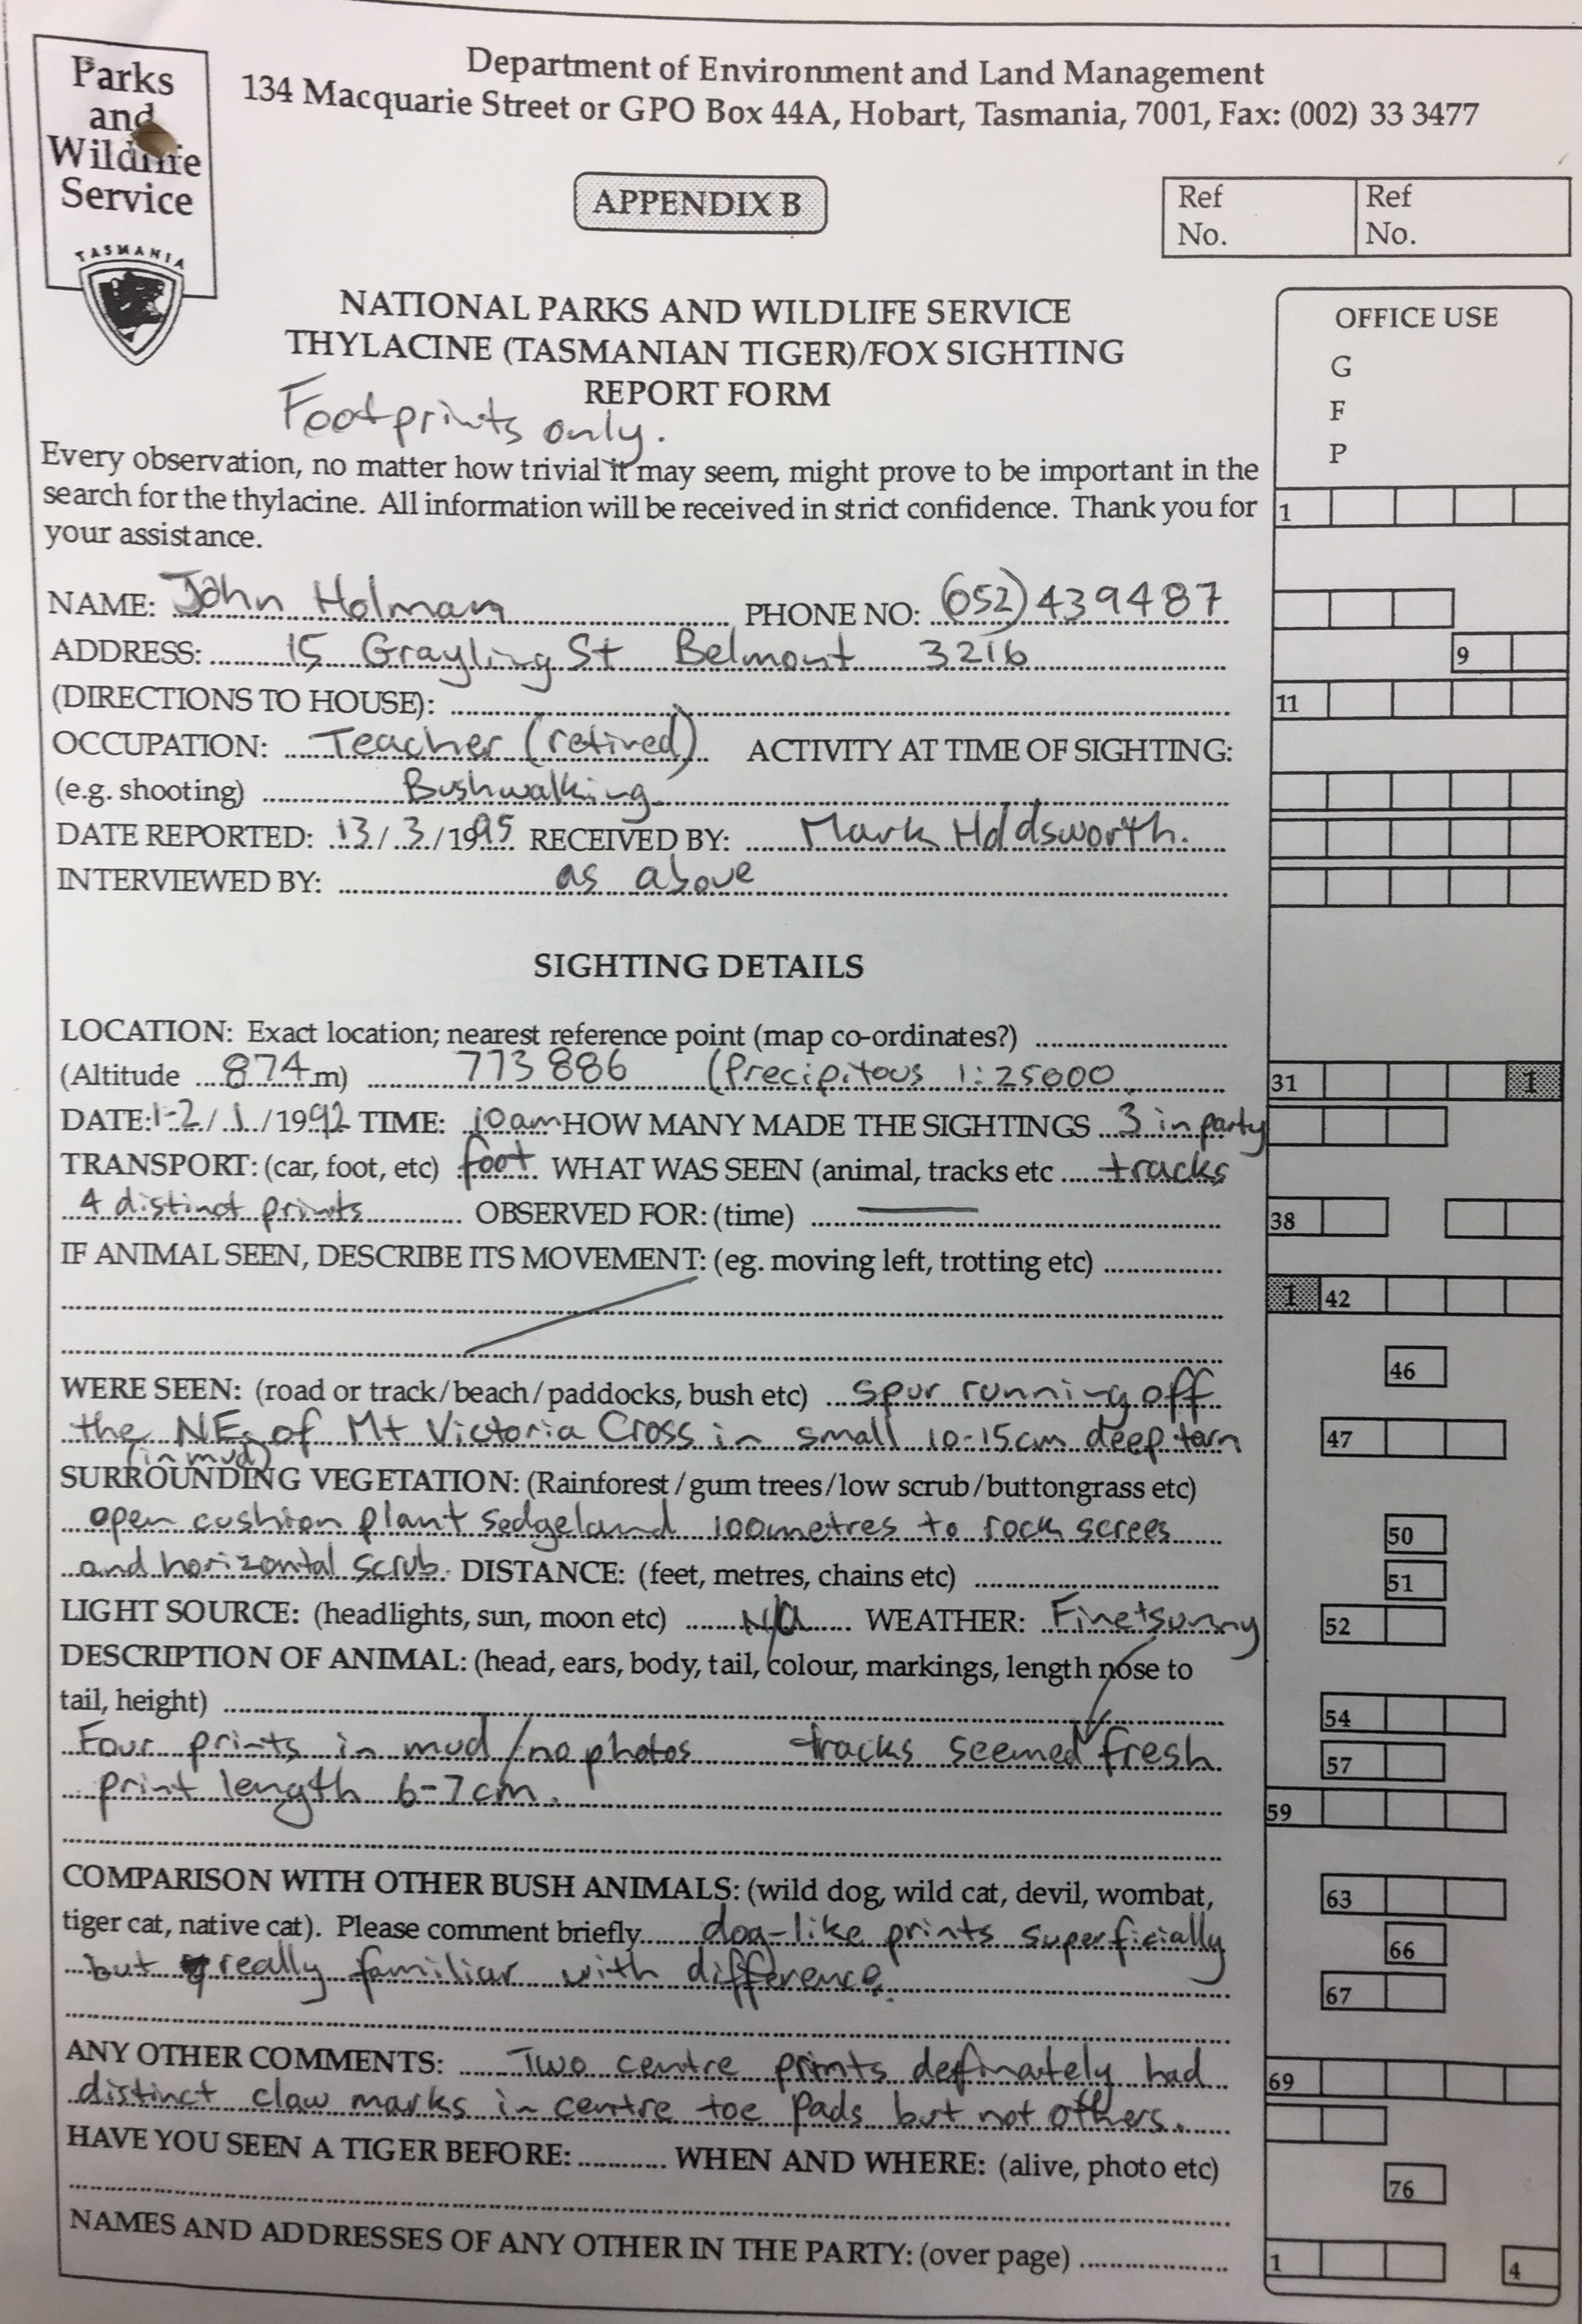 Parks
and
Wildlife
Service
TASMANIA
Department of Environment and Land Management
134 Macquarie Street or GPO Box 44A, Hobart, Tasmania, 7001, Fax: (002) 33 3477
APPENDIX B
Ref No.
Ref No.
NATIONAL PARKS AND WILDLIFE SERVICE
THYLACINE (TASMANIAN TIGER)/FOX SIGHTING
REPORT FORM
Footprints only.
OFFICE USE
G
F
P
Every observation, no matter how trivial it may seem, might prove to be important in the
search for the thylacine. All information will be received in strict confidence. Thank you for
your assistance.
1
NAME: John Holman PHONE NO: (052) 439487
ADDRESS: 15 Grayling St Belmont 3216
9
(DIRECTIONS TO HOUSE):
11
OCCUPATION: Teacher (retired) ACTIVITY AT TIME OF SIGHTING:
(e.g. shooting) Bushwalking
DATE REPORTED: 13/3/1995 RECEIVED BY: Mark Holdsworth.
INTERVIEWED BY: as above
SIGHTING DETAILS
LOCATION: Exact location; nearest reference point (map co-ordinates?)
(Altitude 874 m) 773 886 (Precipitous 1:25000
31 1
DATE: 1-2/1/1992 TIME: 10am HOW MANY MADE THE SIGHTINGS 3 in party
TRANSPORT: (car, foot, etc) foot WHAT WAS SEEN (animal, tracks etc tracks
4 distinct prints OBSERVED FOR: (time) —
38
IF ANIMAL SEEN, DESCRIBE ITS MOVEMENT: (eg. moving left, trotting etc)
1 42
46
WERE SEEN: (road or track/beach/paddocks, bush etc) spur running off
the NE of Mt Victoria Cross in small 10-15cm deep tarn
(in mud)
47
SURROUNDING VEGETATION: (Rainforest/gum trees/low scrub/buttongrass etc)
open cushion plant sedgeland 100metres to rock screes
50
and horizontal scrub. DISTANCE: (feet, metres, chains etc)
51
LIGHT SOURCE: (headlights, sun, moon etc) N/A WEATHER: Fine+sunny
52
DESCRIPTION OF ANIMAL: (head, ears, body, tail, colour, markings, length nose to
tail, height)
54
Four prints in mud/no photos tracks seemed fresh
57
print length 6-7cm.
59
COMPARISON WITH OTHER BUSH ANIMALS: (wild dog, wild cat, devil, wombat,
63
tiger cat, native cat). Please comment briefly dog-like prints superficially
66
but really familiar with difference.
67
ANY OTHER COMMENTS: Two centre prints definately had
69
distinct claw marks in centre toe pads but not others.
HAVE YOU SEEN A TIGER BEFORE: WHEN AND WHERE: (alive, photo etc)
76
NAMES AND ADDRESSES OF ANY OTHER IN THE PARTY: (over page)
1 4